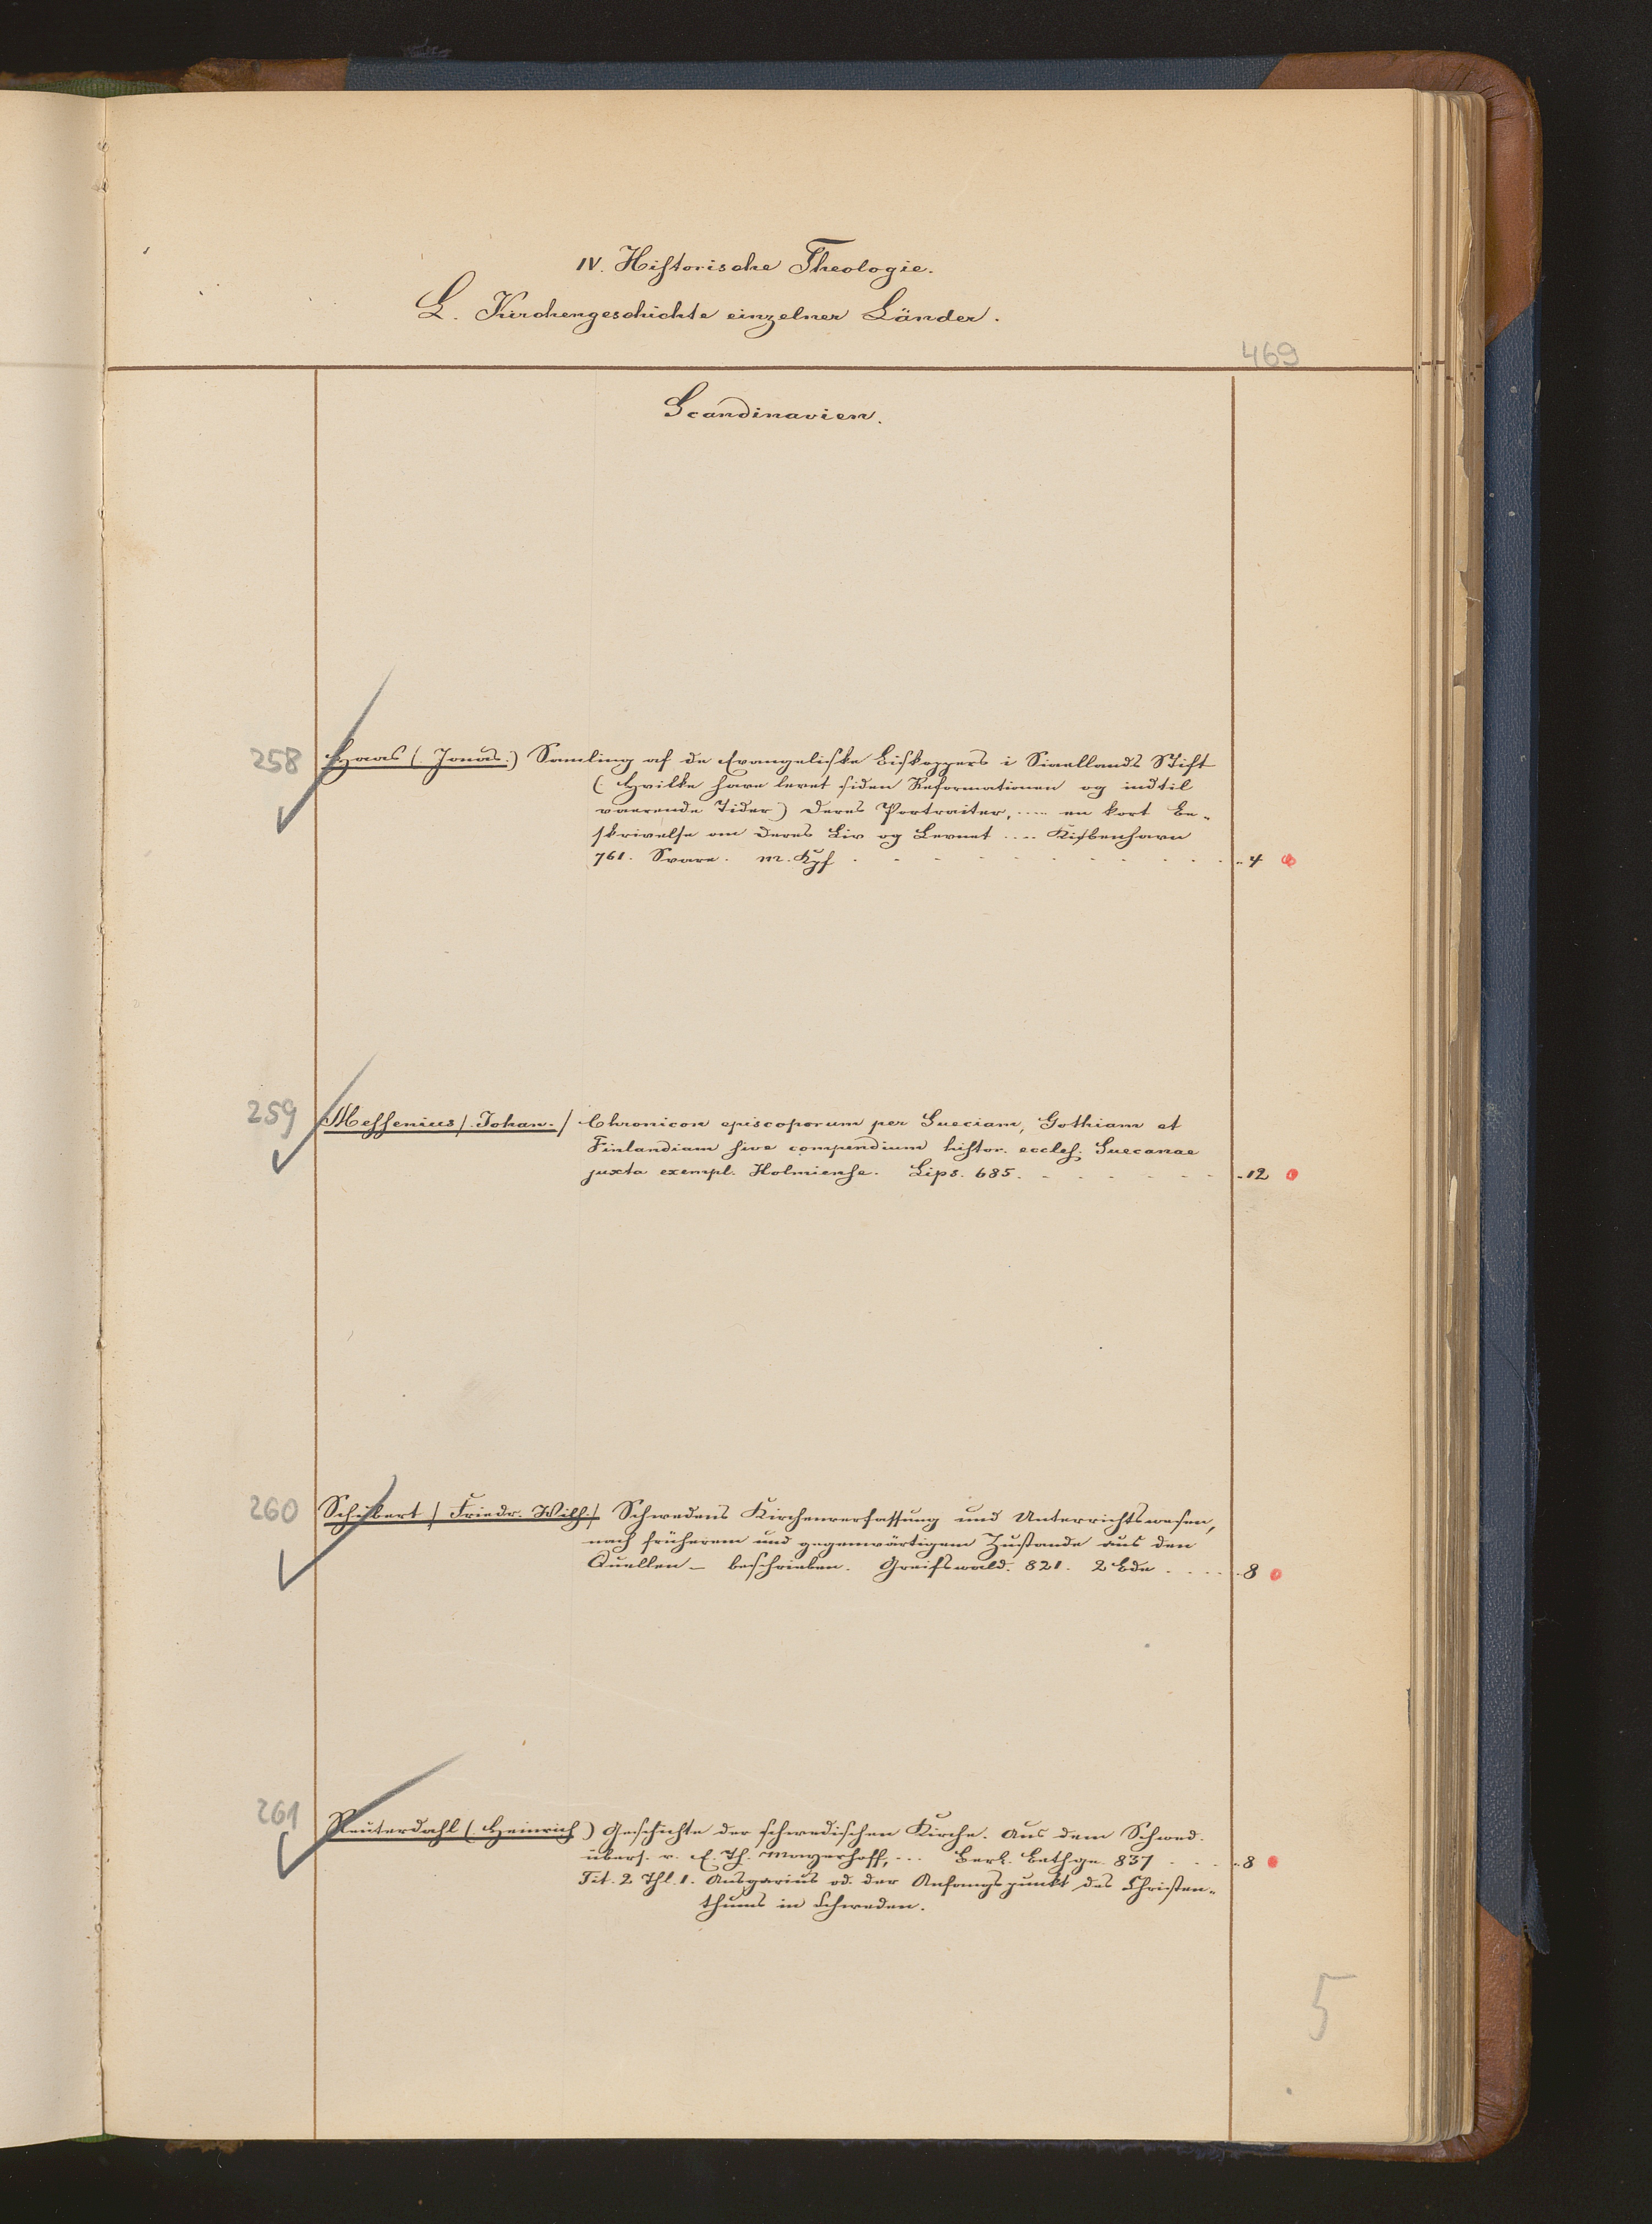 IV. Historische Theologie.
L. Kirchengeschichte einzelner Länder.
469
Scandinavien.
258 Haas (Jonas.) Samling af de Evangeliske Biskoppers i Siaellands Stift
(Hvilke have levet siden Reformationen og indtil
vaerende Tider) deres Portraiter, .... en kort Be-
skrivelse om deres Liv og Levnet .... Kiøbenhavn
761. Svare. m. Kpf . . . . . 4
259 Messenius /. Johan. / Chronicon episcoporum per Sueciam, Gothiam et
Finlandiam sive compendium histor. eccles. Suecanae
juxta exempl. Holmiense. Lips. 685. . . . . 12
260 Schubert / Friedr. Wilh. / Schwedens Kirchenverfassung und Unterrichtswesen,
nach früherem und gegenwärtigem Zustande aus den
Quellen – beschrieben. Greifswald. 821. 2 Bde . . . . 8
261 Reuterdahl (Heinrich) Geschichte der schwedischen Kirche. Aus dem Schwed.
übers. v. E. Th. Mayerhoff, ... Berl. Bethge. 837 . . . . 8
Tit. 2 Thl. 1. Ansgarius od. der Anfangspunkt des Christen-
thums in Schweden.
5